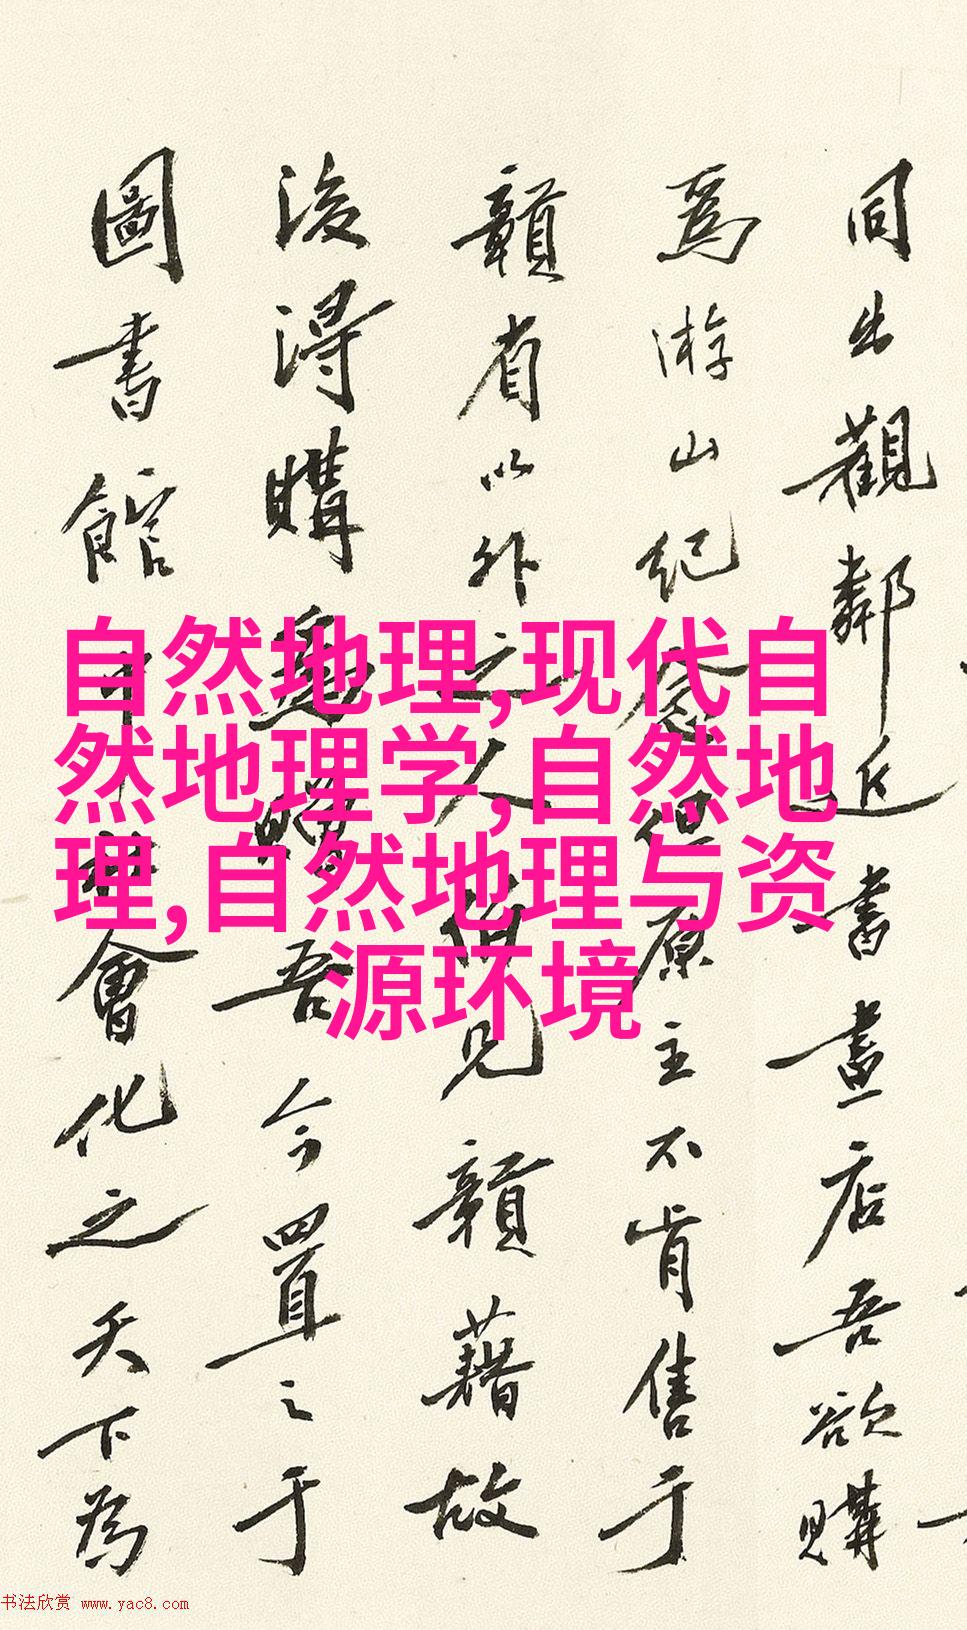 同出觀鄰近書畫店吾欲購
為游山紀念但原主不肯售于
贛省以外之人伯見贛藉故
後得購與贈吾今置之于
圖書館中社會化之天下為
自然地理,现代自
然地理学,自然地
理,自然地理与资
源环境
书法欣赏 www.yac8.com